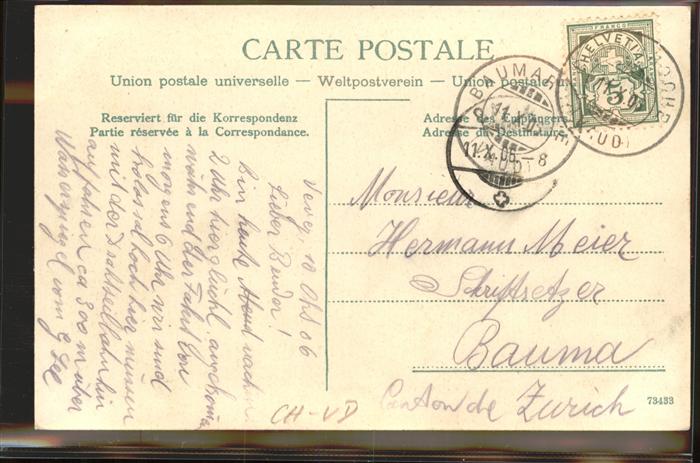 CARTE POSTALE
Union postale universelle — Weltpostverein — Union postale un
Reserviert für die Korrespondenz
Partie réservée à la Correspondance.
Adresse des Empfängers
Adresse du Destinataire
FRANCO
HELVETIA
5
BAUMA
11.X.06.—8
Vevey, 10 Okt 06
Lieber Bruder!
Bin heute Abend nach
2 Uhr hier glückl. angekom
während der Fahrt von
morgens 6 Uhr wir sind
hoch hier müssen
mit der Drahtseilbahn hin
auffahren ca 300 m über
Wasserspiegel vom g. See
Monsieur
Hermann Meier
Schriftsetzer
Bauma
Canton de Zurich
CH-VD
73433